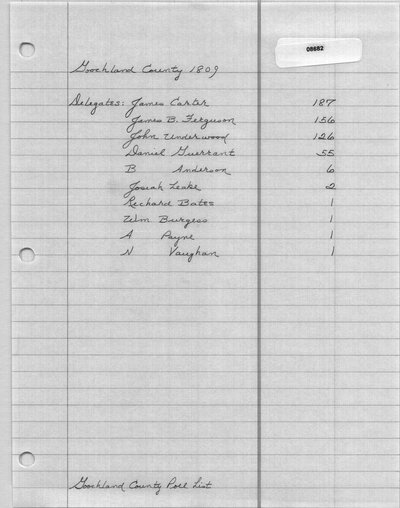 08682
Goochland County 1809
Delegates: James Carter 187
James B. Ferguson 156
John Underwood 126
Daniel Guerrant 55
B Anderson 6
Josiah Leake 2
Richard Bates 1
Wm Burgess 1
A Payne 1
N Vaughan 1
Goochland County Poll List